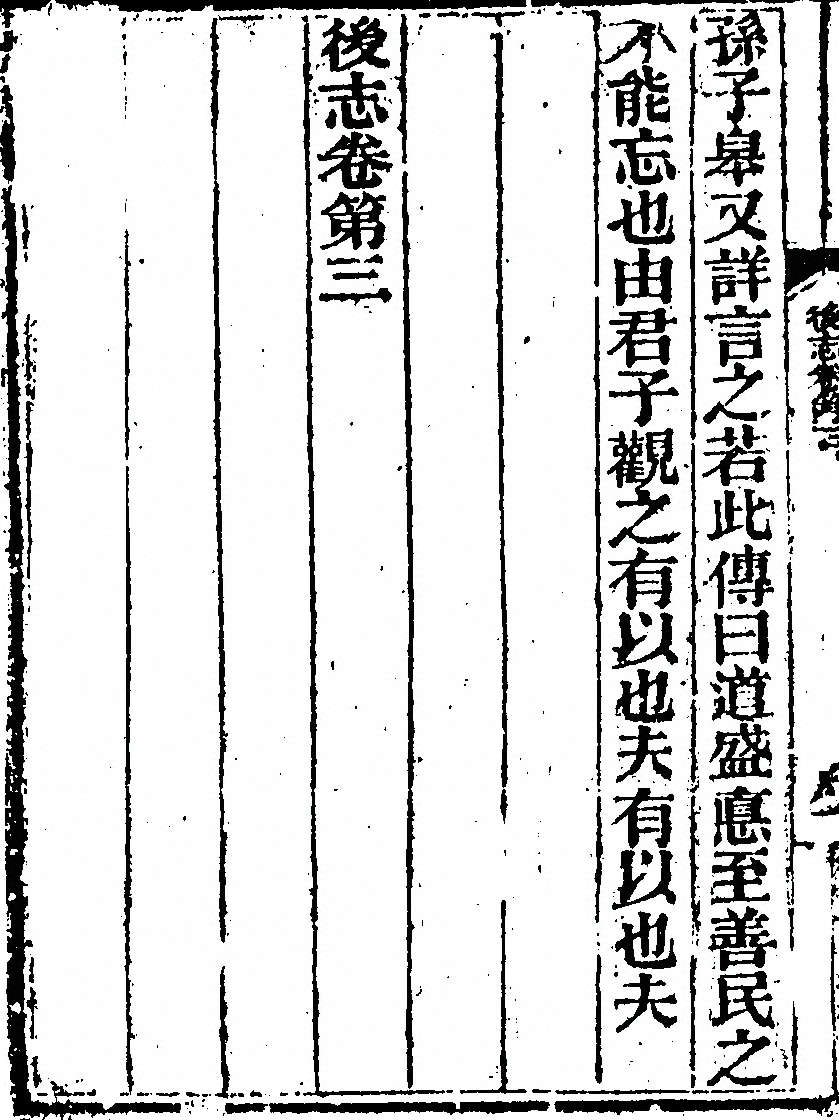 孫子皋又詳言之若此傳曰道盛悳至善民之
不能忘也由君子觀之有以也夫有以也夫
後志卷第三
後志卷第三